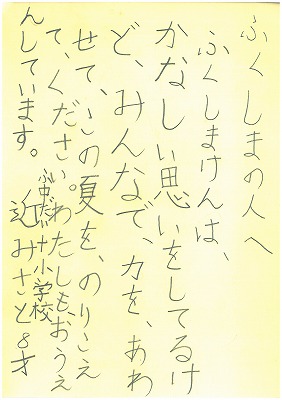 ふくしまの人へ
ふくしまけんは、
かなしい思いをしてるけ
ど、みんなで、力を、あわ
せて、この夏を、のりこえ
て、ください。わたしも、おうえ
んしています。
小学校
近みさと8才